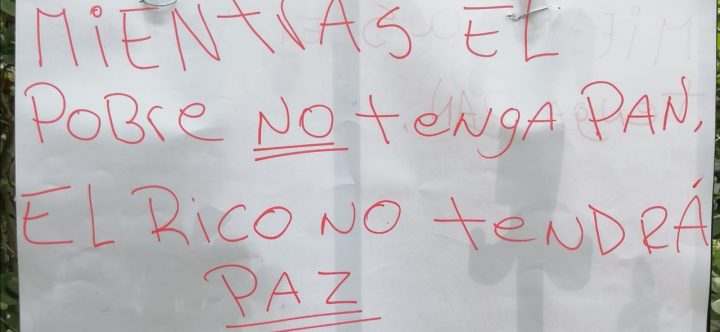 MiENtRAS EL
POBre NO tengA PAN,
EL RiCO NO teNDRÁ
PAZ